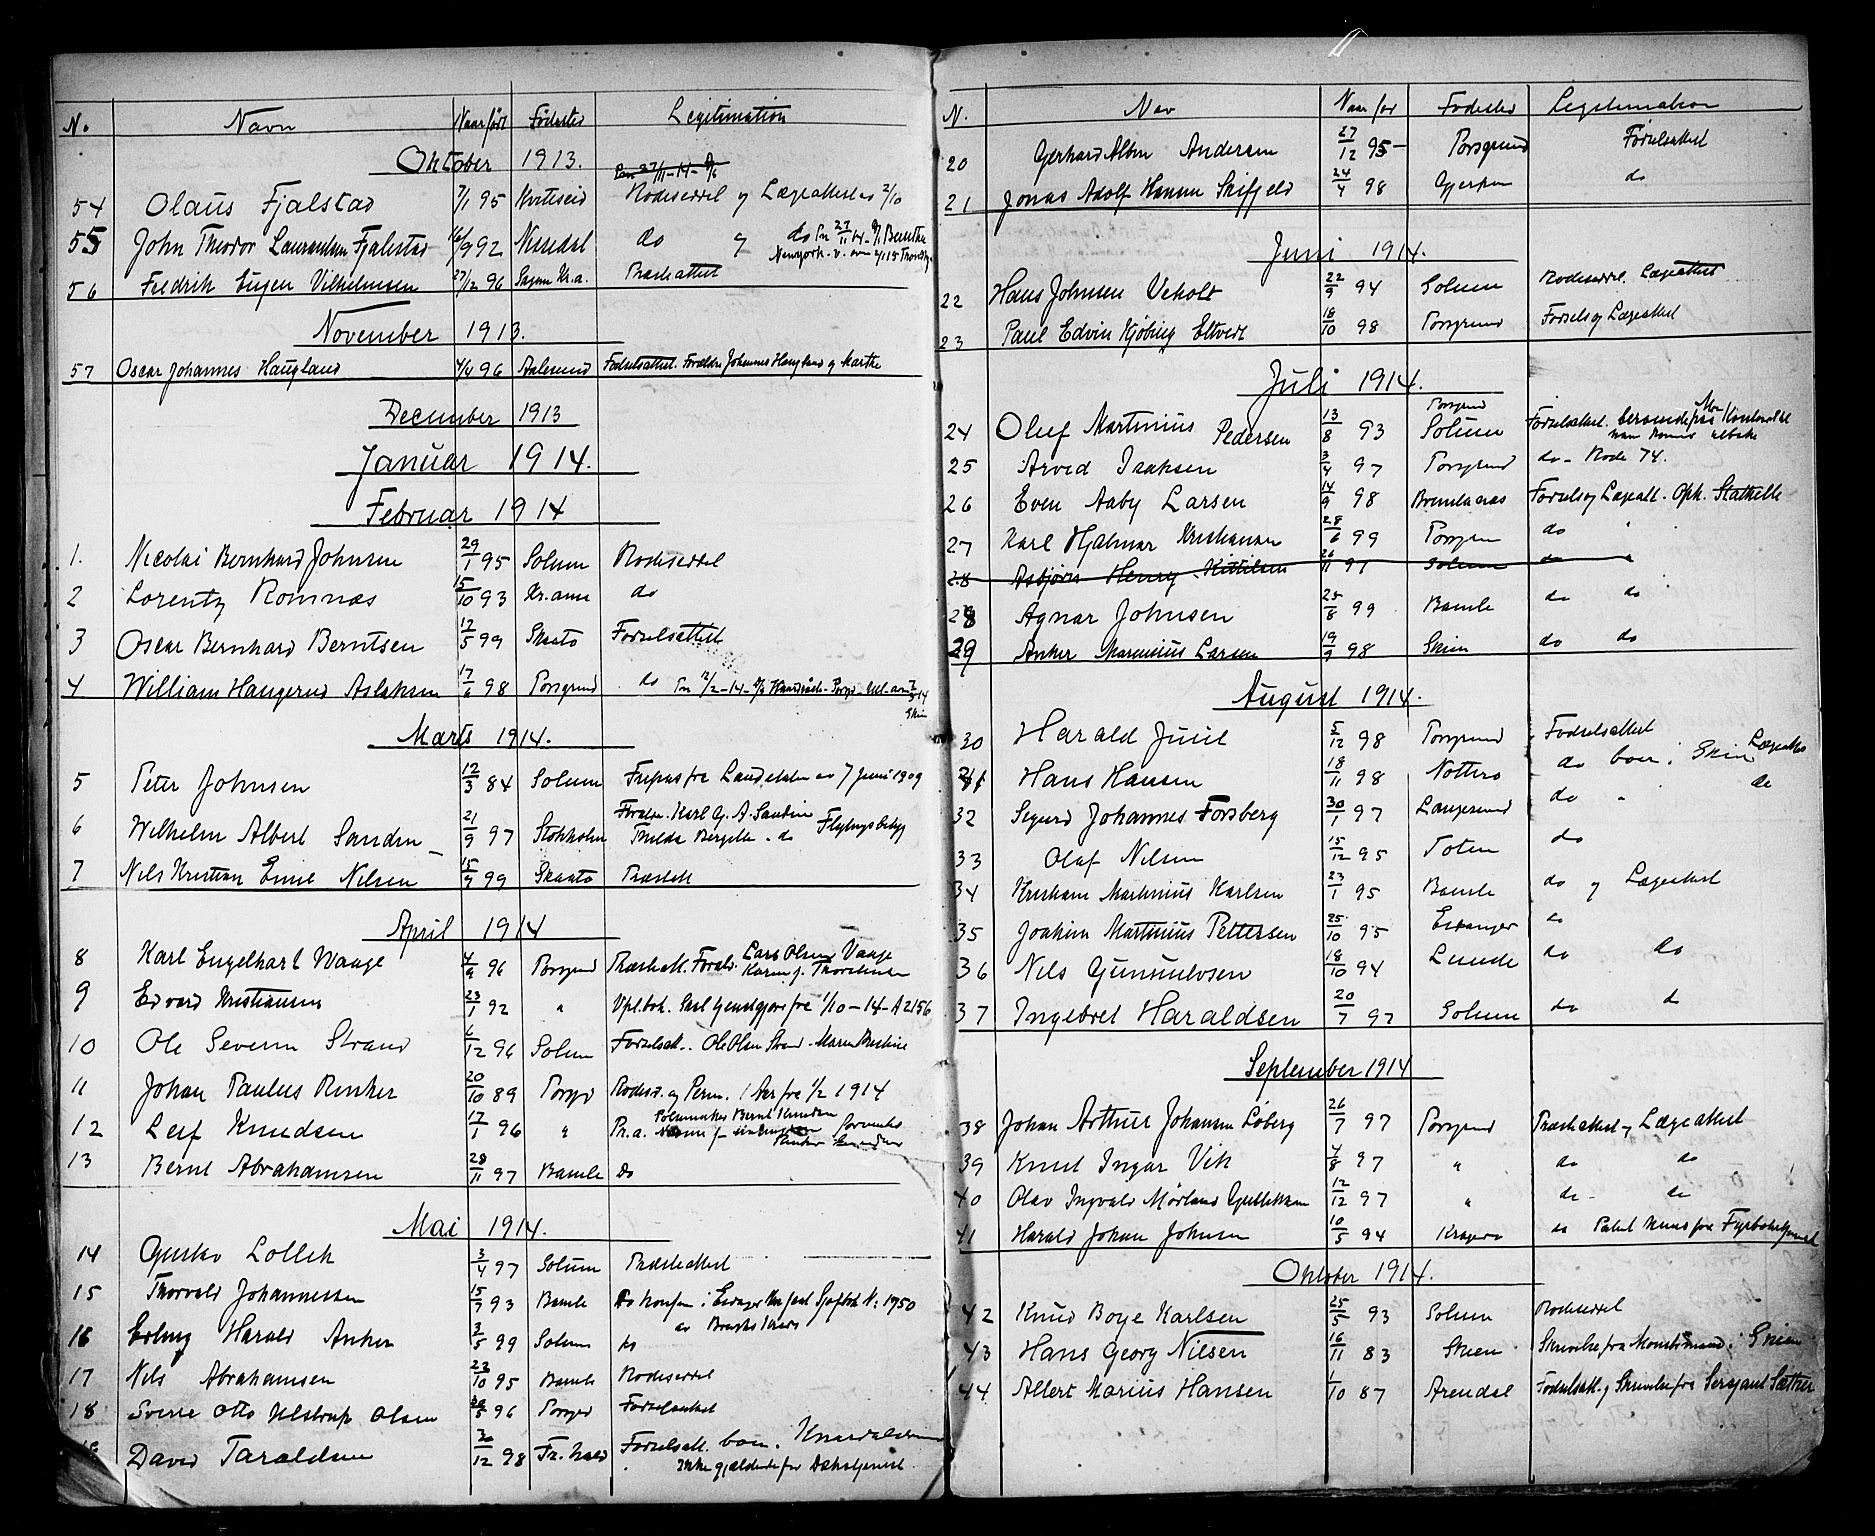 N. Navn Naar født Fødested Legitimation
Oktober 1913.
54 Olaus Fjalstad 7/1 95 Kviteseid Rodeseddel og Lægeattest 2/10
55 John Theodor Laurentsen Fjalestad 16/9 92 Nissedal do og do
56 Fredrik Eugen Vilhelmsen 27/12 96 Kr.a. Præsteattest
November 1913.
57 Oscar Johannes Haugland 4/4 96 Aalesund Fødselsattest. Forældre Johannes Haugland og Marthe
December 1913
Januar 1914.
Februar 1914
1. Nicolai Bernhard Johnsen 29/1 95 Solum Rodeseddel
2 Lorentz Romnæs 15/10 93 Kr.ania do
3 Oscar Bernhard Berntsen 17/5 99 Skaato Fødselsattest
4. William Haugerud Aslaksen 17/6 98 Porsgrund do
Skien
Marts 1914.
5 Peter Johnsen 12/3 84 Solum Fripas fra Landetaten av 7 juni 1909
6 Wilhelm Albert Sandin 21/9 97 Stokholm Foræld. Karl G. A. Sandin
Thilda do Flytningsbetyg
7 Nils Kristian Emil Nilsen 15/9 99 Skaato Præsteatt
April 1914
8 Karl Engelhart Waage 4/9 96 Porsgrund Præsteatt. Foræld. Lars Olsen Vaage
Karen J. Thorstensen
9 Edvard Kristiansen 23/1 92 " fra 1/10-14-A2156
10 Ole Severin Strand 6/12 96 Solum Fødselsatt. Ole Olsen Strand - Maren
11 Johan Paulus Rinker 20/10 89 Porsgr Rodesed. og Perm. 1 Aar fra 1/2 1914
12 Leif Knudsen 17/1 96 " Pr.a. Bernt Knudsen
13 Bernt Abrahamsen 28/11 97 Bamle Do
Mai 1914.
14 Gustav Lollik 3/4 97 Solum Præsteattest
15 Thorvald Johannessen 15/7 93 Bamle Do Konfm. i Eidanger Sjøfbok N: 1950
16 Erling Harald Anker 3/5 99 Solum do
17 Nils Abrahamsen 22/10 95 Bamle Rodeseddel
18 Sverre Otto Ulstrup Olsen 5 96 Porsgr Fødselsattest
David Taraldsen 30/12 98 Fr.hald Fødselsatt. boen. Knardalstrand
Ikke gjældende for Dækstjeneste
N. Nav Naar fød Fødested Legitimation
20 Gerhard Albin Andersen 27/12 95 Porsgrund Fødselsattest
21 Jonas Adolf Hansen Skifjeld 24/4 98 Gjerpen do
Juni 1914.
22 Hans Johnsen Veholt 22/9 94 Solum Rodeseddel. Lægeattest
23 Paul Edvin Kjøbing Eltvedt 18/10 98 Porsgrund Fødsels og Lægeattest
Juli 1914.
24 Oluf Martinius Pedersen 13/8 93 Porsgrund Solum Fødselsattest.
25 Arved Isaksen 3/4 97 Porsgrund do - Rode 74.
26 Even Aaby Larsen 14/9 98 Brevik Fødsels og Lægeatt. Oph. Stathelle
27 Karl Hjalmar Kristiansen 28/6 99 Porsgrun do "
28 Asbjørn Henry Kittilsen 26/11 97 Solum do "
28 Agnar Johnsen 25/8 99 Bamle do do
29 Anker Marinius Larsen 19/9 98 Skien do do
August 1914.
30 Harald Juul 5/12 98 Porsgrund Fødselsattest
31 Hans Hansen 18/11 98 Nøttero do boen i Skien Lægeattes
32 Sigurd Johannes Forsberg 30/1 97 Langesund do " do
33 Olaf Nilsen 15/12 95 Toten do
34 Kristian Martinius Karlsen 23/1 95 Bamle do og Lægeattest
35 Joakim Martinius Pettersen 25/10 95 Eidanger do
36 Nils Gunnulvsen 18/10 94 Lunde do do
37 Ingebret Haraldsen 20/7 97 Solum do do
September 1914
38 Johan Arthur Johansen Løberg 26/7 97 Porsgrund Præsteattest og Lægeattest
39 Knut Ingar Vik 4/8 97 " do do
40 Olav Ingvald Mørland Gulliksen 12/12 97 " do do
41 Harald Johan Johnsen 10/5 94 Kragerø do
Oktober 1914.
42 Knud Boye Karlsen 25/5 93 Solum Rodeseddel
43 Hans Georg Nilsen 16/11 83 Skien Skrivelse fra i Skien
44 Albert Marius Hansen 1/10 87 Arendal Fødselsatt. og Skrivelse fra Sersjant Sæther